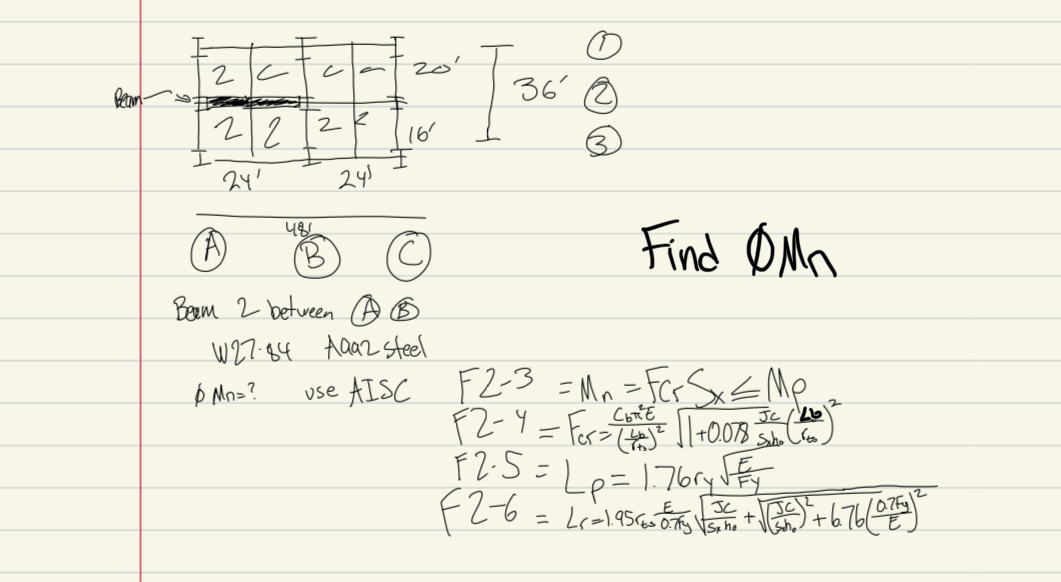 ①
20'
36'
Beam
②
16'
③
24' 24'
48'
Ⓐ Ⓑ Ⓒ
Find ØMn
Beam 2 between Ⓐ Ⓑ
W27·84 A992 steel
ϕMn=? use AISC
F2-3 = Mn = Fcr Sx ≤ Mp
F2-4 = Fcr = Cbπ²E/(Lb/rts)² √1+0.078 JC/Sxho (Lb/rts)²
F2-5 = Lp = 1.76ry √E/Fy
F2-6 = Lr=1.95rts E/0.7Fy √JC/Sxho + √(JC/Sxho)² + 6.76(0.7Fy/E)²